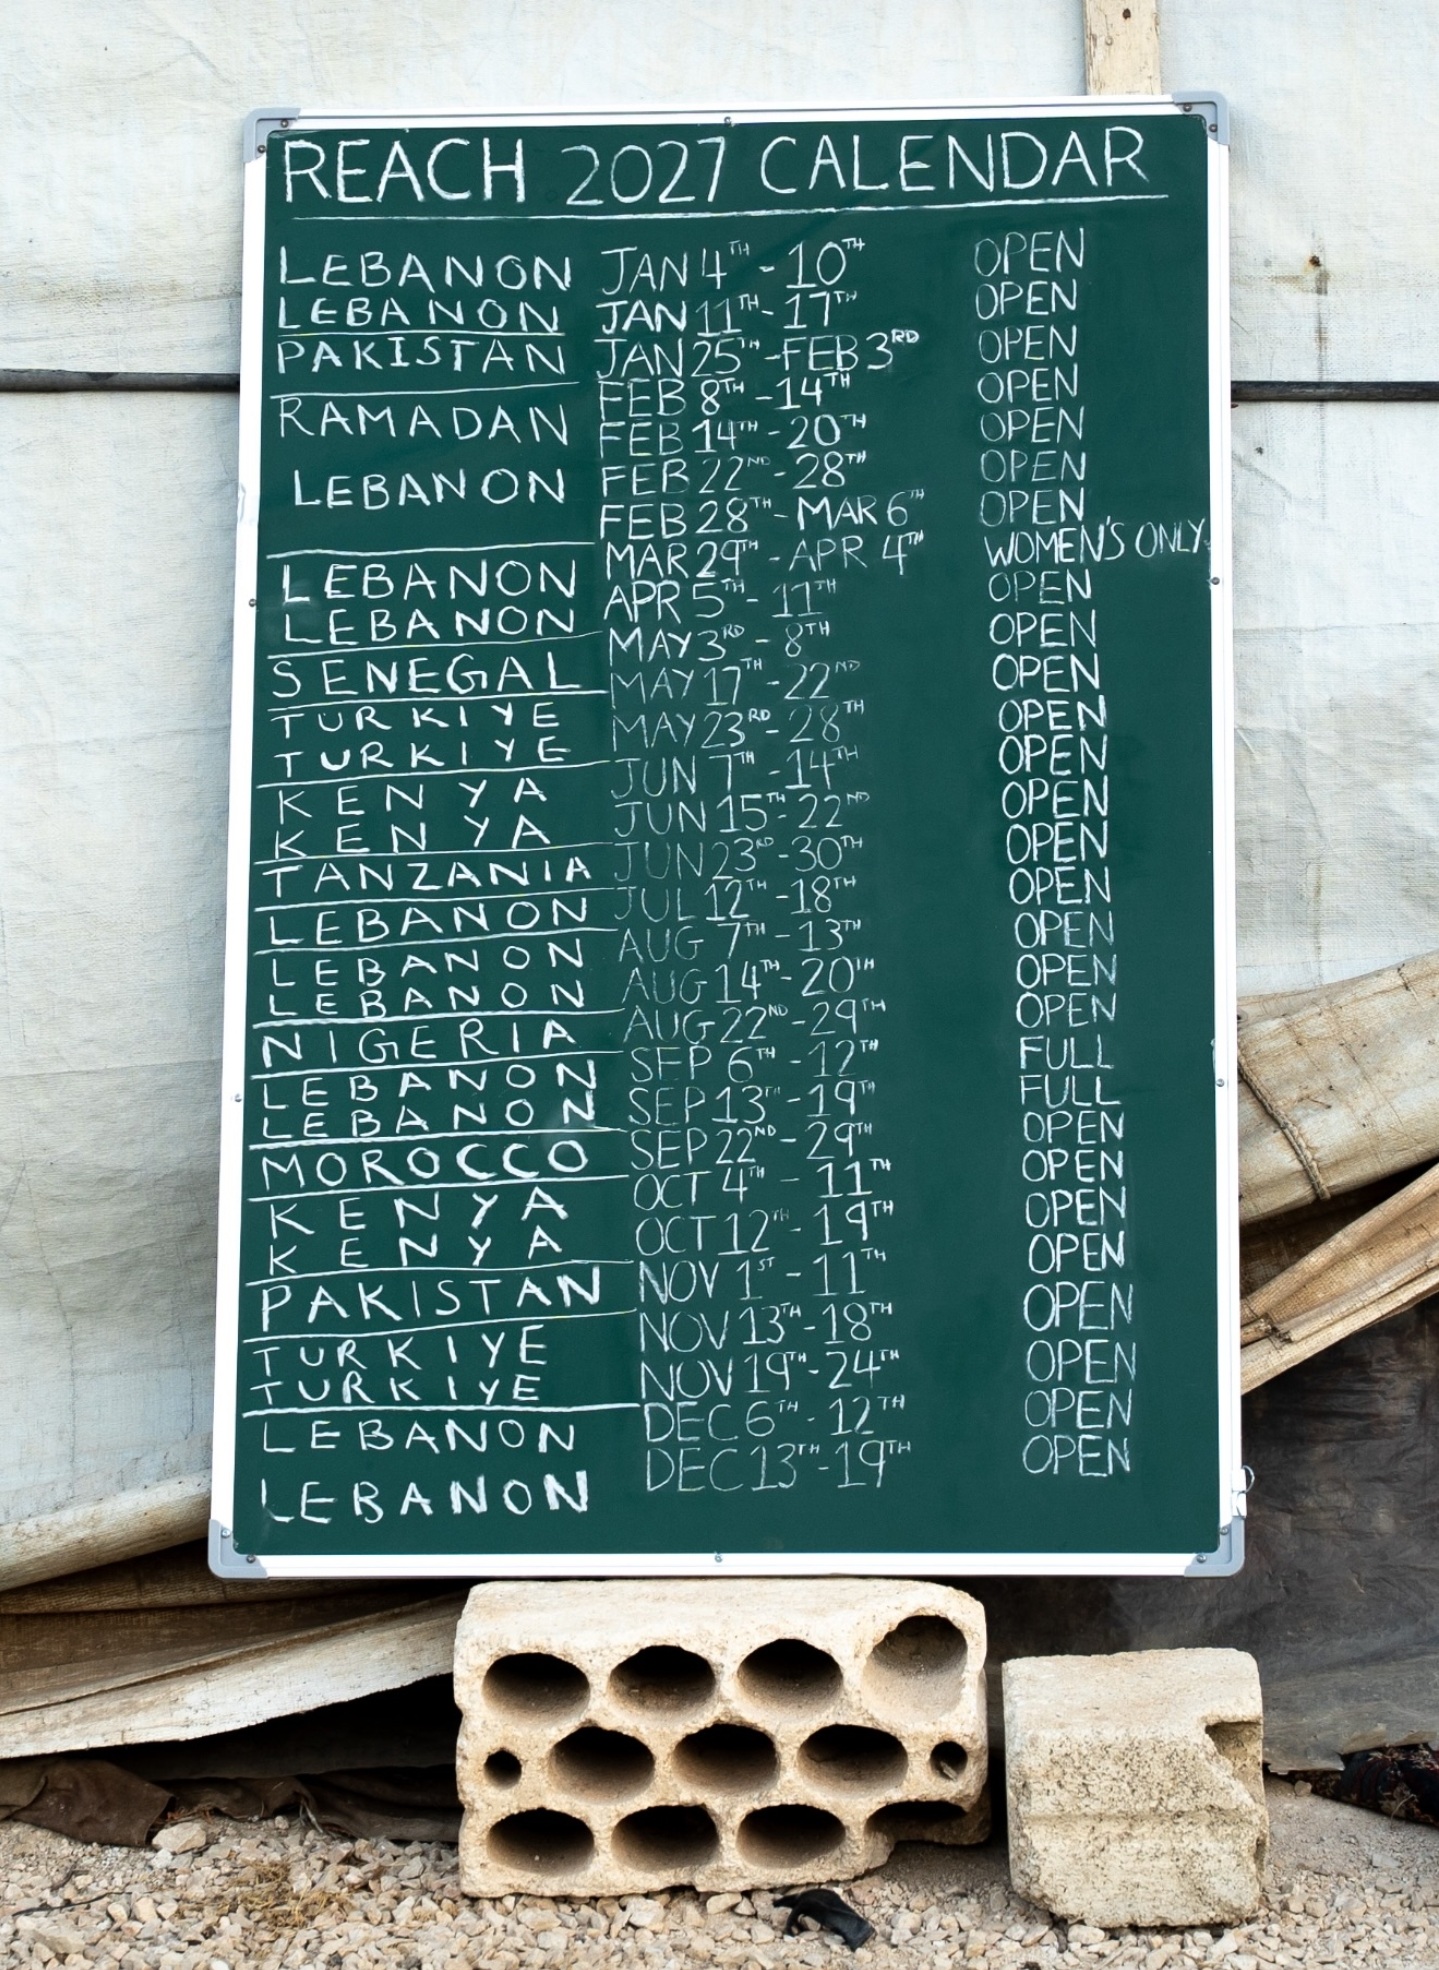 REACH 2027 CALENDAR
LEBANON JAN 4TH - 10TH OPEN
LEBANON JAN 11TH - 17TH OPEN
PAKISTAN JAN 25TH - FEB 3RD OPEN
FEB 8TH - 14TH OPEN
RAMADAN FEB 14TH - 20TH OPEN
LEBANON FEB 22ND - 28TH OPEN
FEB 28TH - MAR 6TH OPEN
LEBANON MAR 29TH - APR 4TH WOMEN'S ONLY
LEBANON APR 5TH - 11TH OPEN
SENEGAL MAY 3RD - 8TH OPEN
TURKIYE MAY 17TH - 22ND OPEN
TURKIYE MAY 23RD - 28TH OPEN
KENYA JUN 7TH - 14TH OPEN
KENYA JUN 15TH - 22ND OPEN
TANZANIA JUN 23RD - 30TH OPEN
LEBANON JUL 12TH - 18TH OPEN
LEBANON AUG 7TH - 13TH OPEN
LEBANON AUG 14TH - 20TH OPEN
NIGERIA AUG 22ND - 29TH OPEN
LEBANON SEP 6TH - 12TH FULL
LEBANON SEP 13TH - 19TH FULL
MOROCCO SEP 22ND - 29TH OPEN
KENYA OCT 4TH - 11TH OPEN
KENYA OCT 12TH - 19TH OPEN
PAKISTAN NOV 1ST - 11TH OPEN
TURKIYE NOV 13TH - 18TH OPEN
TURKIYE NOV 19TH - 24TH OPEN
LEBANON DEC 6TH - 12TH OPEN
LEBANON DEC 13TH - 19TH OPEN